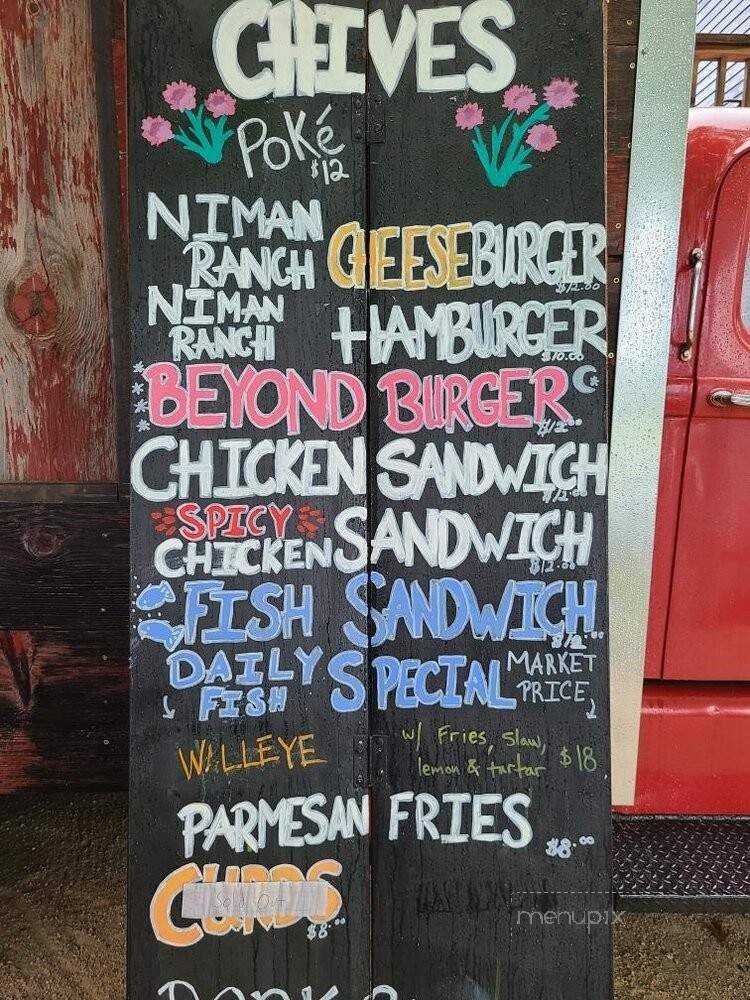 CHIVES
Poké
$12
NIMAN RANCH CHEESEBURGER
$12.00
NIMAN RANCH HAMBURGER
$10.00
BEYOND BURGER
$12.00
CHICKEN SANDWICH
$12.00
SPICY CHICKEN SANDWICH
$12.00
FISH SANDWICH
$12.00
DAILY FISH SPECIAL MARKET PRICE
WALLEYE w/ Fries, slaw, lemon & tartar $18
PARMESAN FRIES
$8.00
CURDS
Sold Out
$8.00
menupix